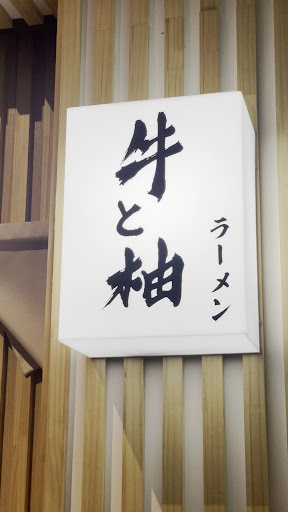 牛と柚
ラーメン